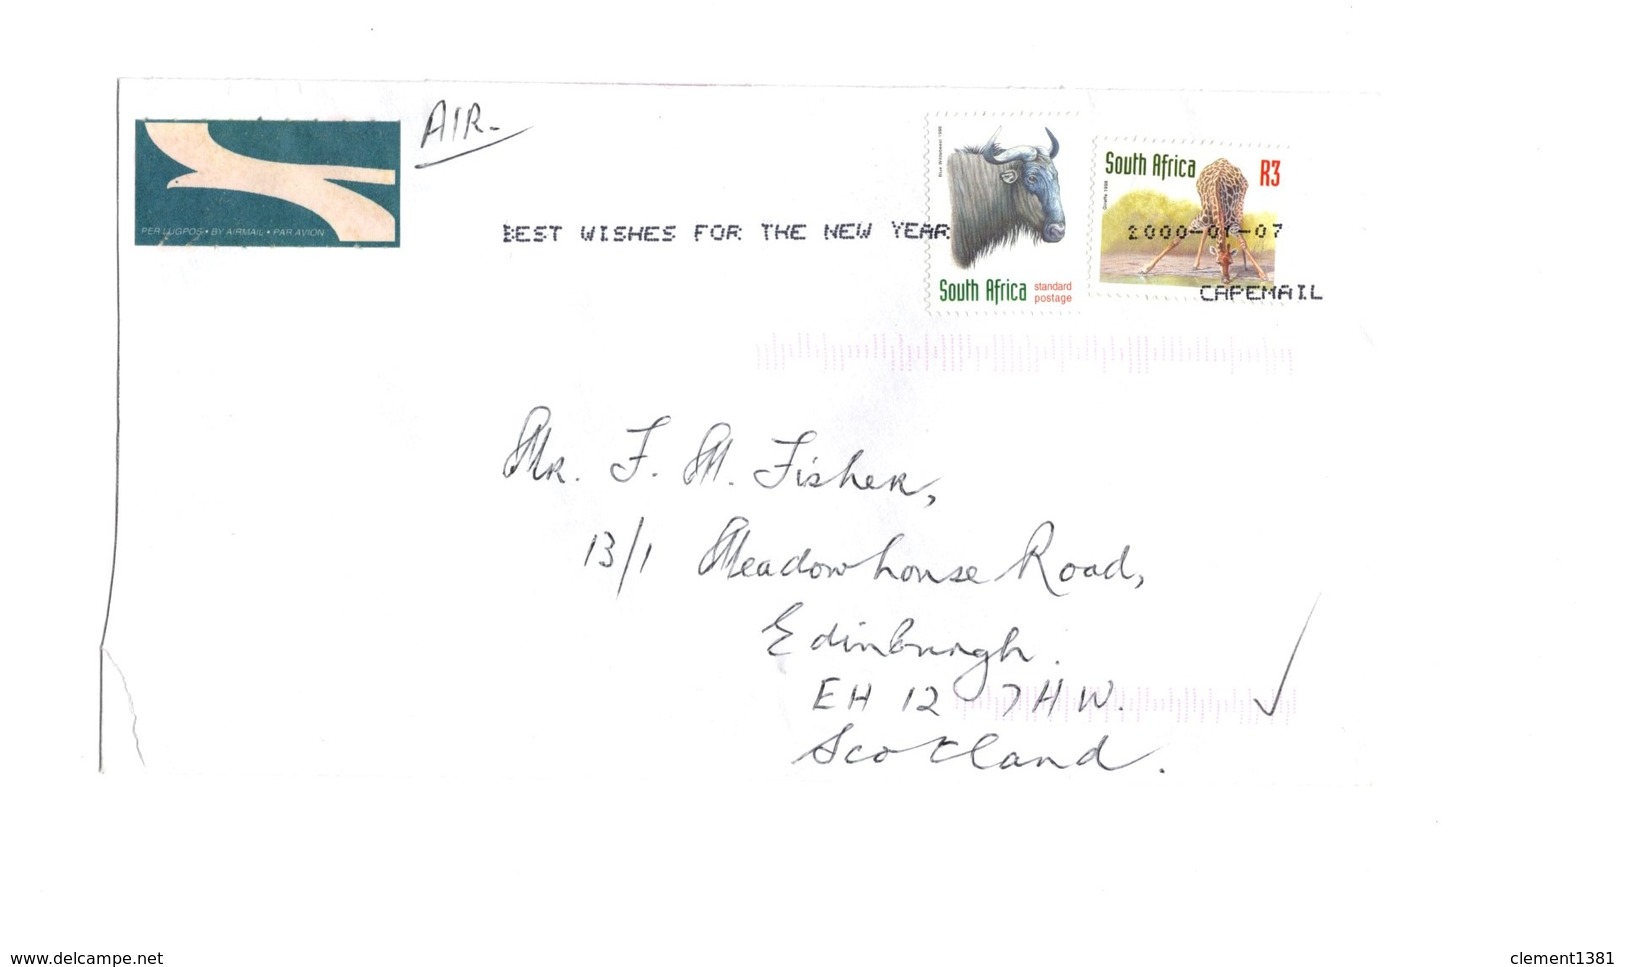 AIR-
PER LUGPOS • BY AIRMAIL • PAR AVION
BEST WISHES FOR THE NEW YEAR
Blue Wildebeest 1998
South Africa
standard
postage
Giraffe 1998
South Africa
R3
2000-01-07
CAPEMAIL
Mr. F. M. Fisher,
13/1 Meadowhouse Road,
Edinburgh.
EH 12 7HW.
Scotland.
www.delcampe.net
clement1381